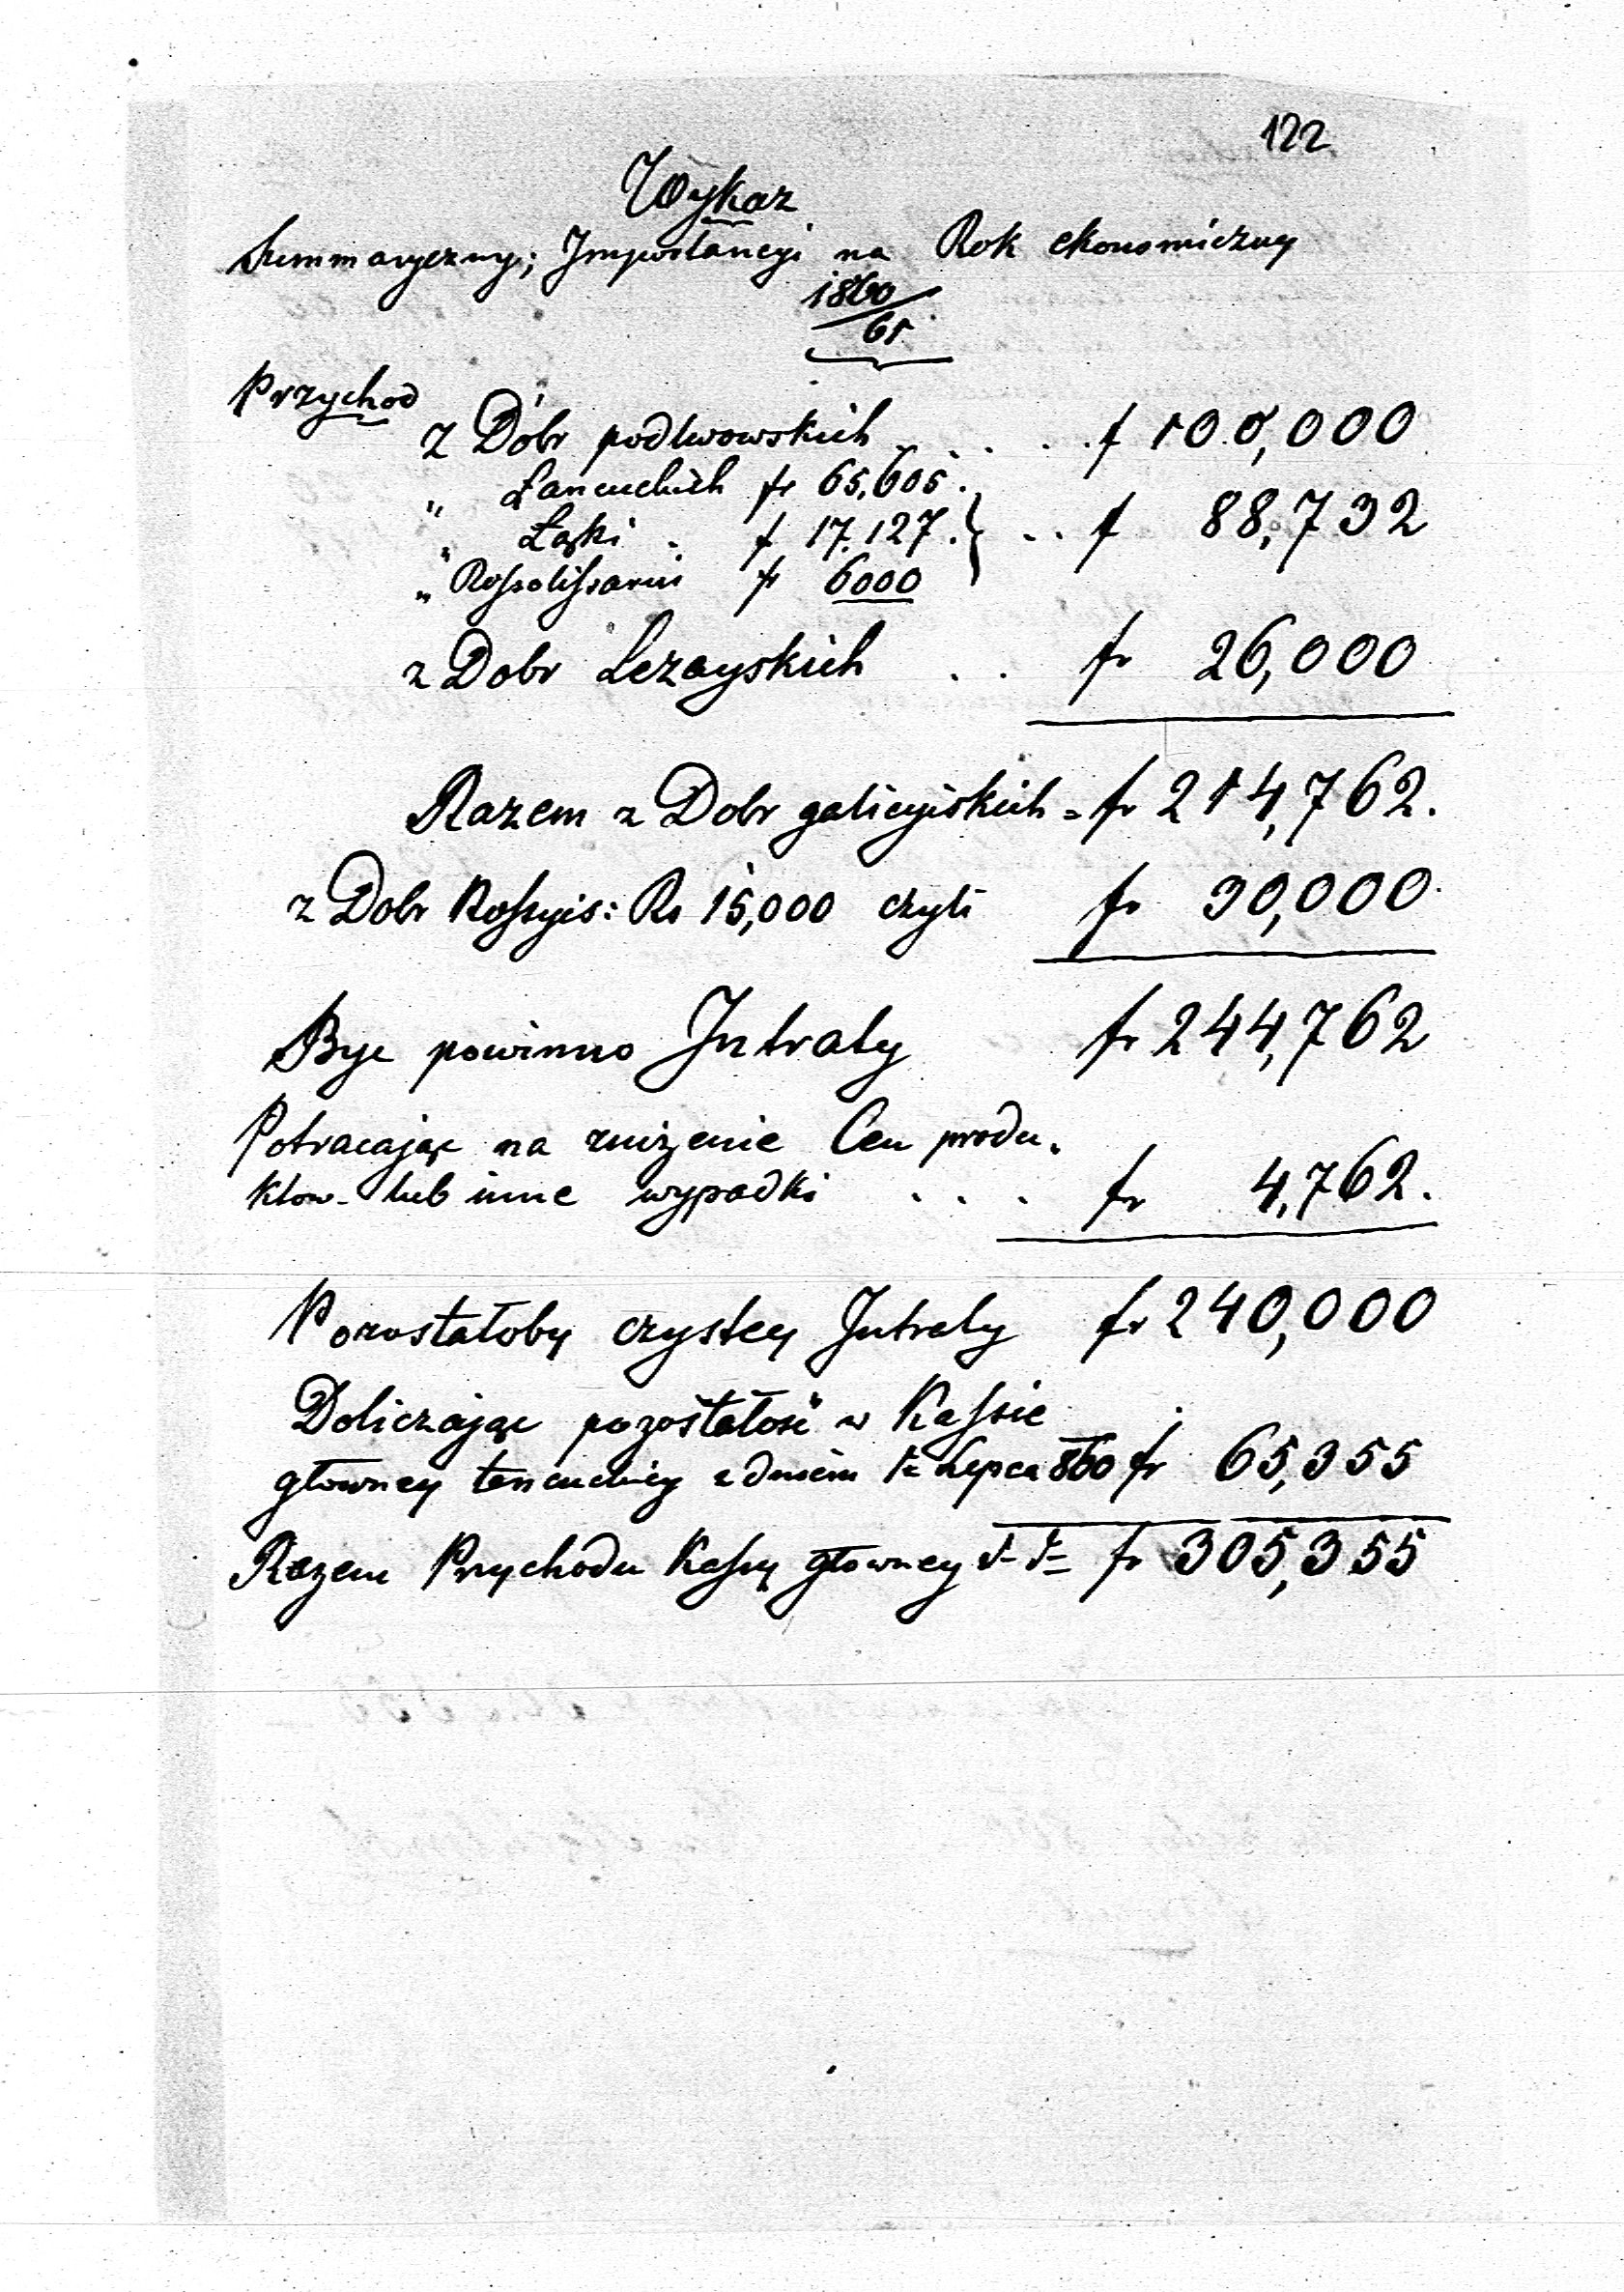 122
Wykaz
Summaryczny; Importancyi na Rok ekonomiczny
1860/61
Przychod
z Dóbr podlwowskich . . . . f 100,000
" Łancuckich fr 65,605.
" Łąki . f 17.127. } . . f 88,732
" Rossolissarni fr 6000
z Dobr Lezayskich . . fr 26,000
Razem z Dobr galicyiskich = fr 214,762.
z Dobr Rossyis: Rs 15,000 czyli fr 30,000
Byc powinno Intraty fr 244,762
Potracając na znizenie Cen produ.
ktow lub inne wypadki . . . fr 4,762.
Pozostałoby czystey Intraty fr 240,000
Doliczając pozostałość w Kassie
głowney łancuckiey z dniem 1o Lipca 860 fr 65,355
Razem Przychodu Kassy głowney fr 305,355